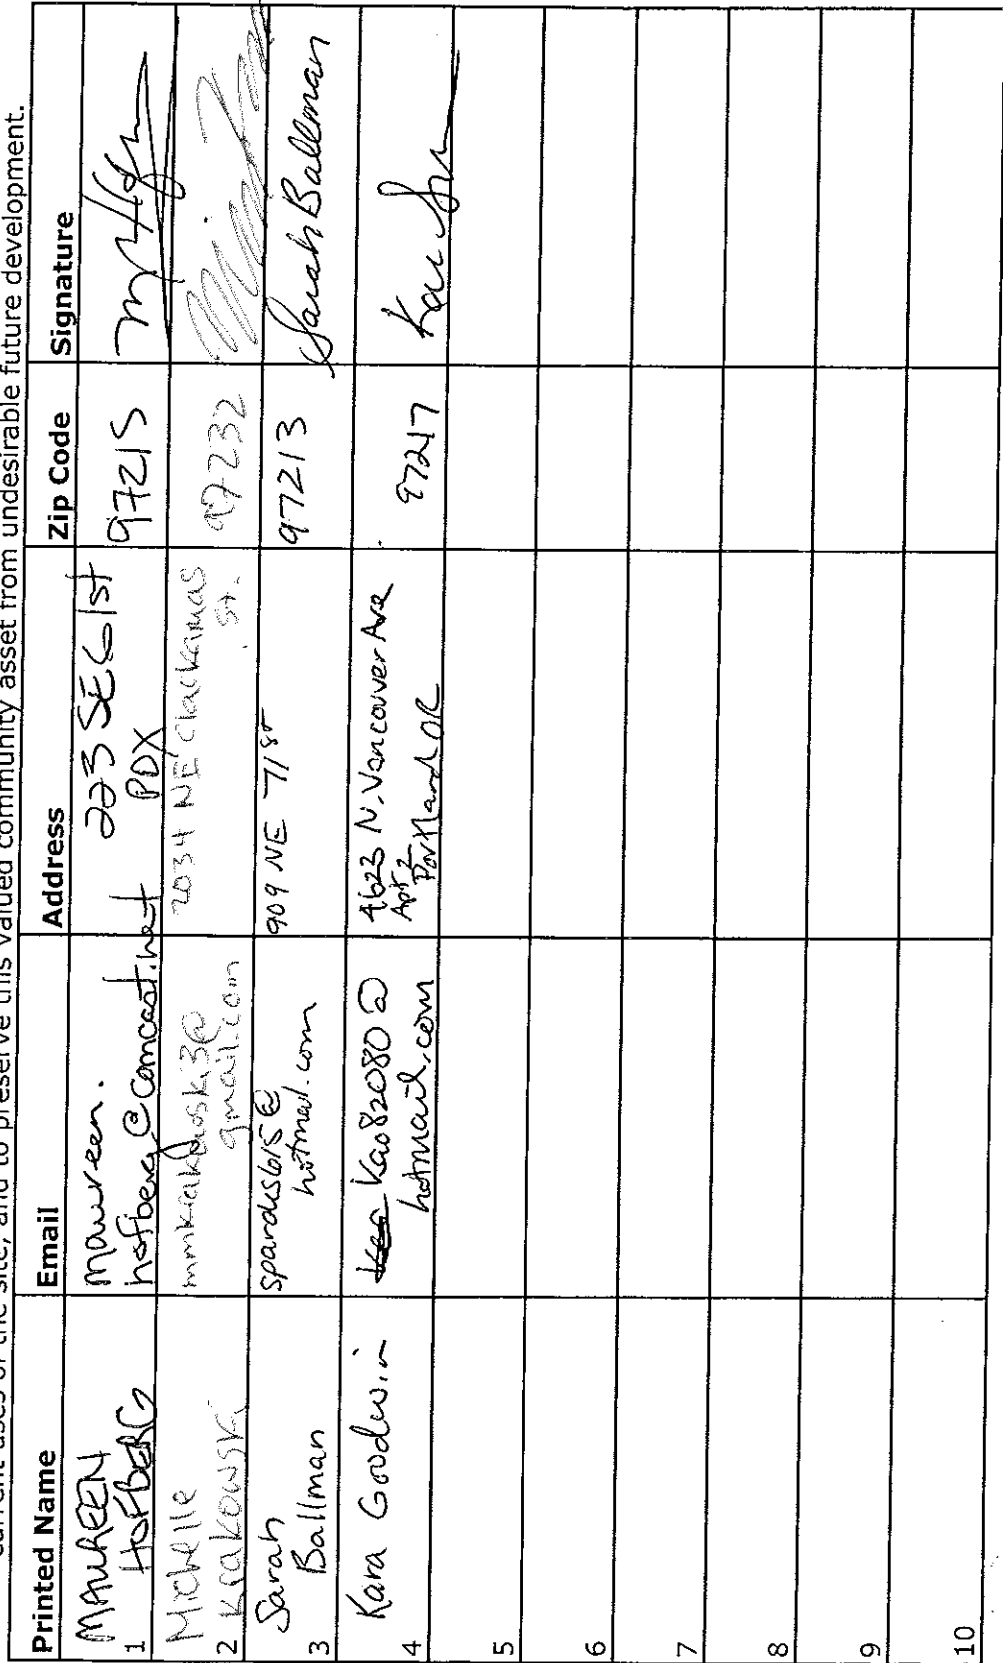 current uses of the site, and to preserve this valued community asset from undesirable future development.
Printed Name Email Address Zip Code Signature
MAUREEN
1 HOFBERG
maureen.
hofberg@comcast.net
223 SE 61st
PDX
97215
Michelle
2 Krakowski
gmail.com
2034 NE Clackamas
St.
97232
Sarah
3 Ballman
hotmail.com
909 NE 71st
97213
Sarah Ballman
4 Kara Goodwin
kao82080@
hotmail.com
4623 N. Vancouver Ave
Apt 2
Portland OR
97217
5
6
7
8
9
10